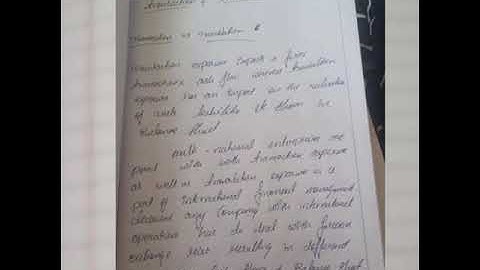 Transaction vs Translation
Transaction exposure impacts a firm's
transactions cash flow whereas translation
exposure has an impact on the valuation
of assets liabilities etc shown in
Balance Sheet
Multi-national enterprises are
with both transaction exposure
as well as translation exposure as a
part of International financial management
because any company with international
operations has to deal with foreign
exchange resulting in different
Balance Sheet